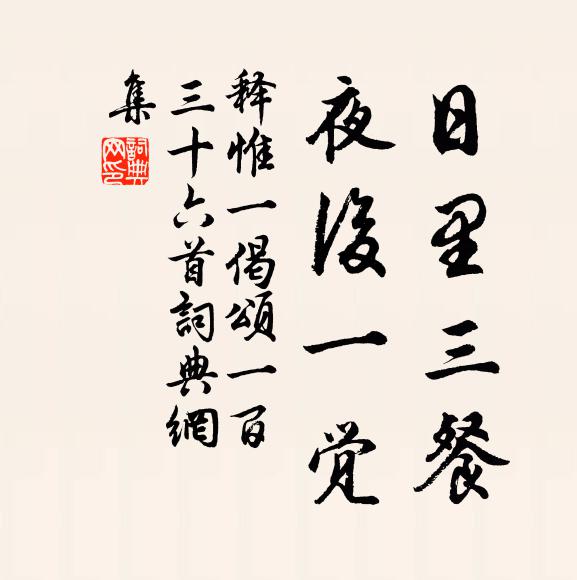 日里三餐
夜後一觉
释惟一偈頌一百
三十六首詞典網
集
詞典
网印